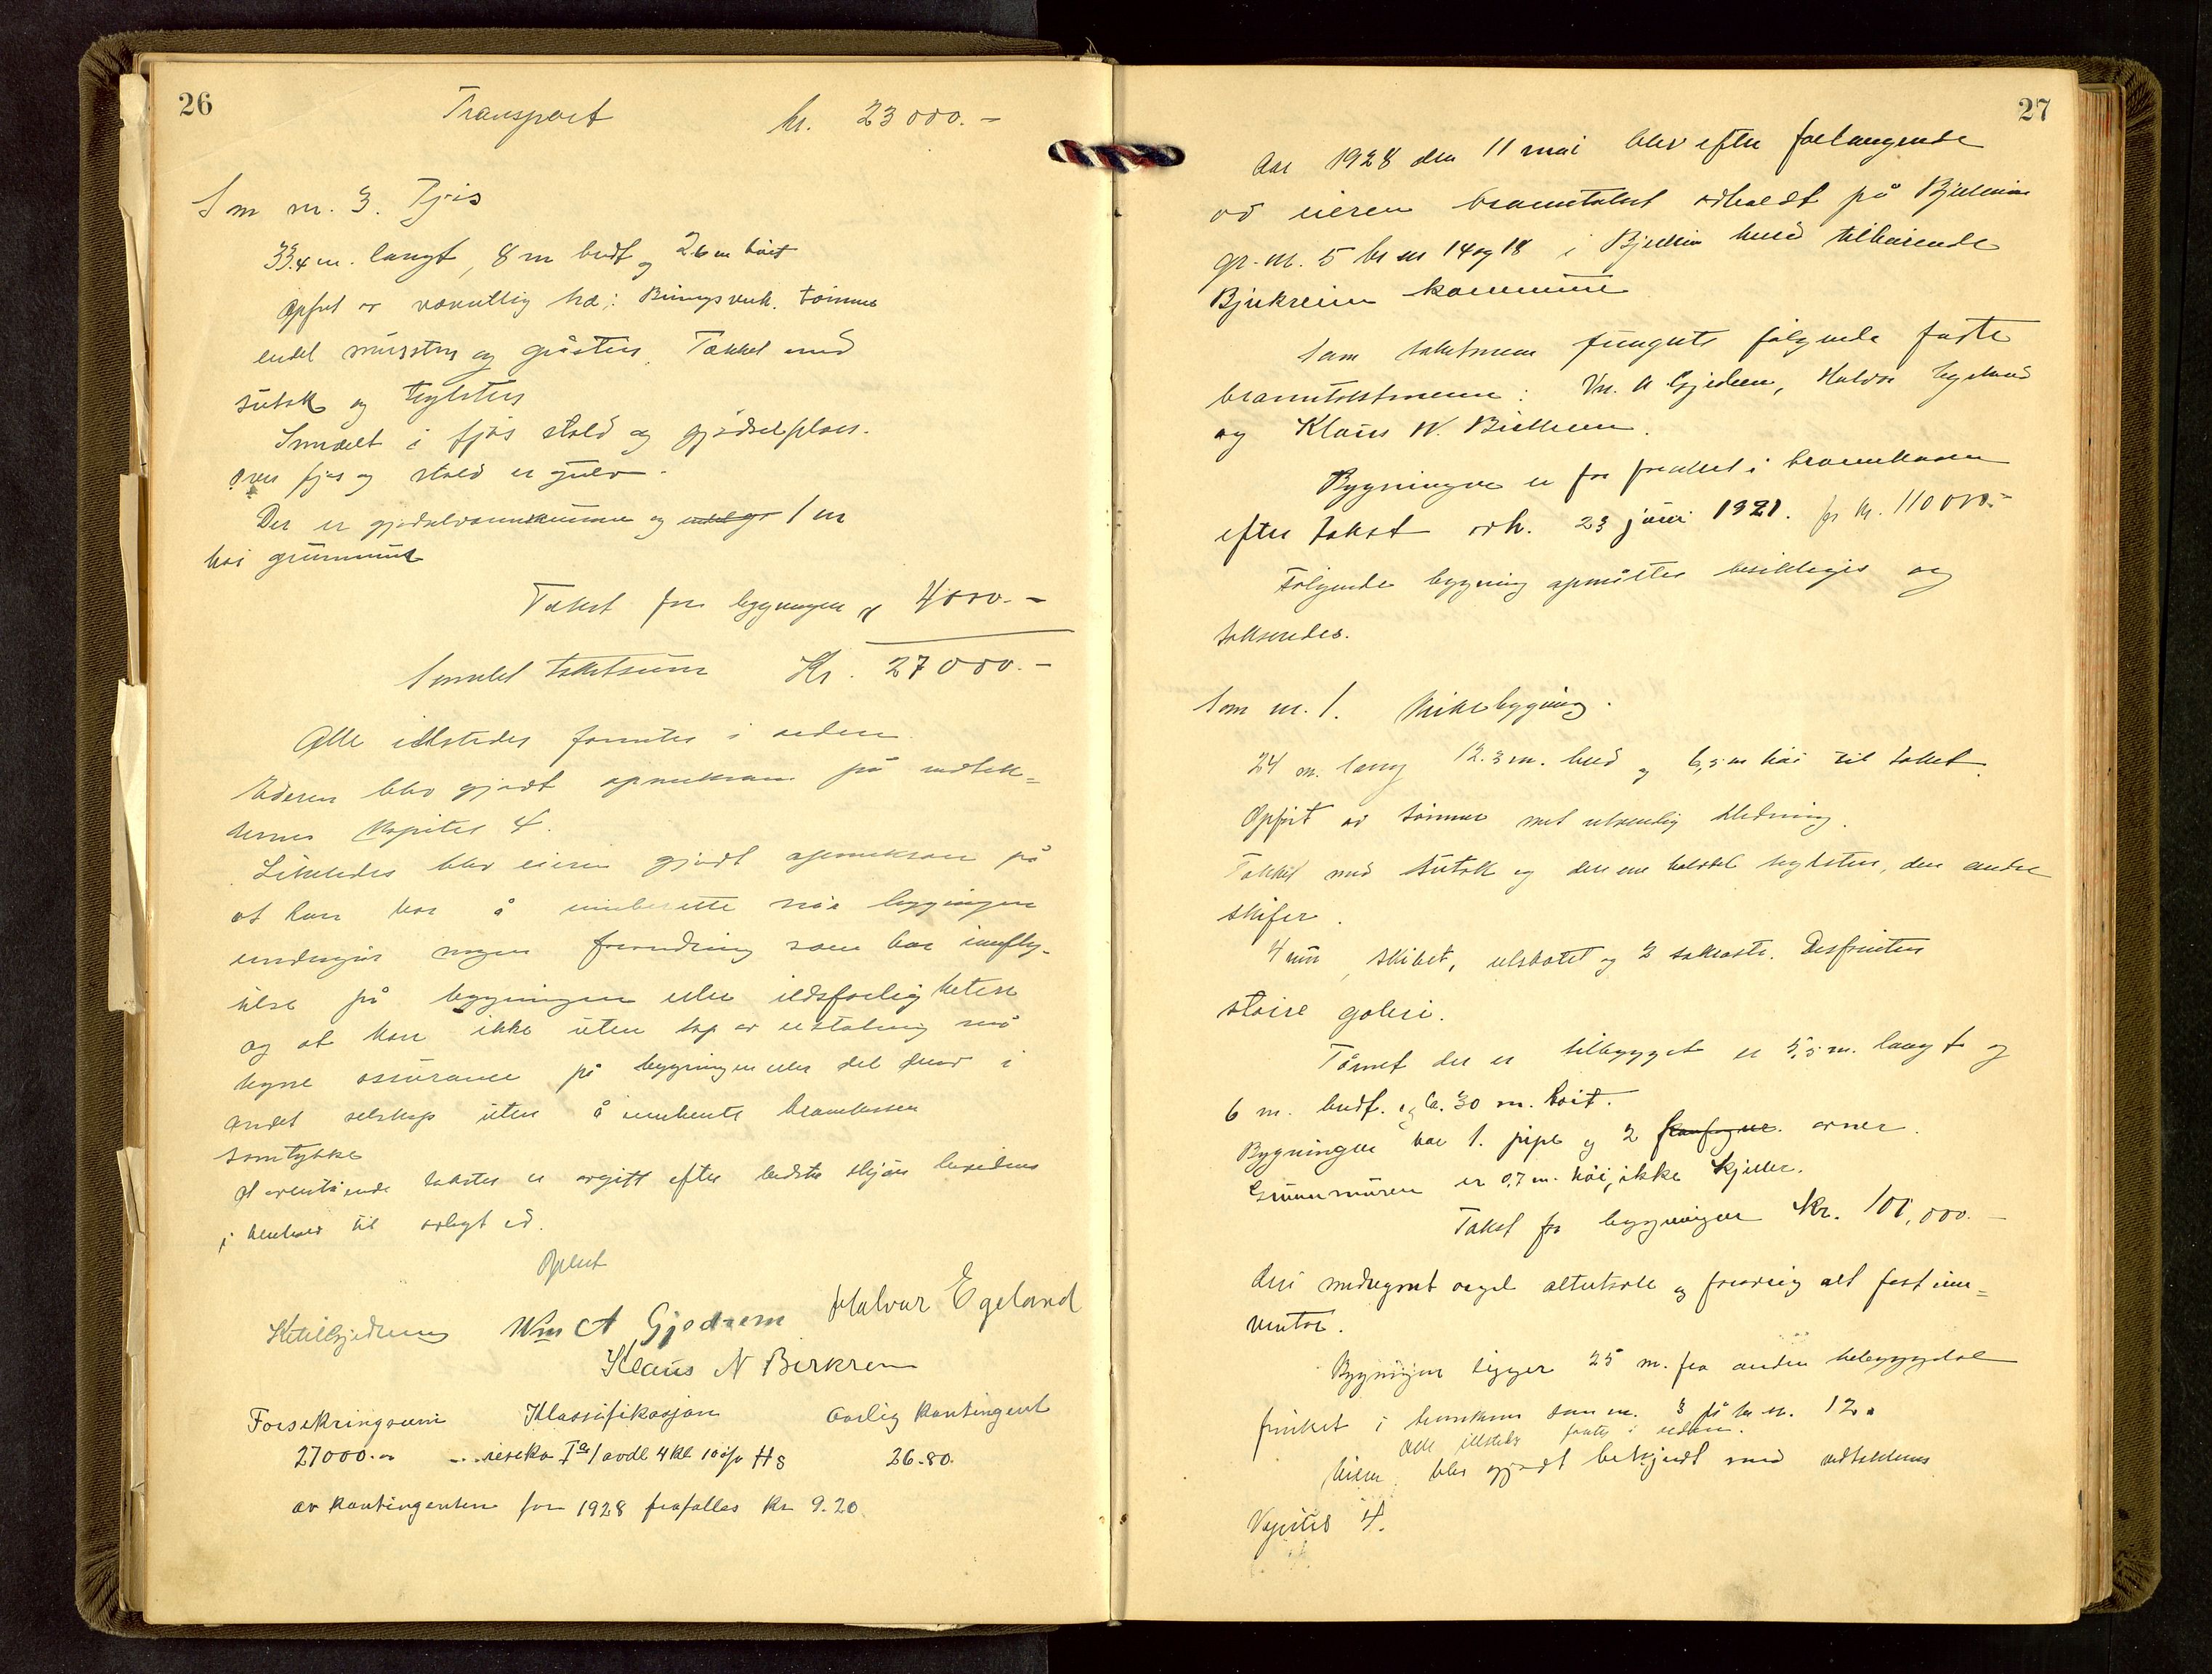 26
Transport kr. 23000.-
Som nr. 3. Fjøs
33.4 m. langt, 8 m bredt og 2.6 m høit
Opført av væsentlig træ: Bingsverk. tømmer
endel mursten og gråsten. Tækket med
sutak og teglsten
Inndelt i fjøs stald og gjødselplass.
Over fjøs og stald er gulv.
Der er gjødselvannskumme og 1 m
høi grunnmur
Takst for bygningen kr 4000.-
Samlet takstsum Kr. 27000.-
Alle ildsteder fantes i orden.
Eieren blev gjordt opmerksom på vedtek=
ternes kapitel 4.
Likeledes blev eieren gjordt opmerksom på
at han har å innberette når bygningen
undergår nogen forandring som har innfly-
telse på bygningen eller ildsfarligheten
og at han ikke uten tap av erstatning må
tegne assurance på bygningen eller del derav i
andet selskap uten å innhente brannkassens
samtykke
At ovenstående takster er avgitt efter bedste skjøn bevidnes
i henhold til avlagt ed.
Oplest
Ketil Gjedrem Wm A Gjedrem Halvar Egeland
Klaus N Birkrem
Forsekringssum Klassifikasjon Aarlig kontingent
27000.- 26-80.
av kontingenten for 1928 frafalles kr 9.20
27
Aar 1928 den 11 mai blev efter forlangende
av eieren branntakst avholdt på Bjerkreim
gr. nr. 5 br nr 14 og 18 i Bjerkreim herred tilhørende
Bjerkreim kommune
Som takstmenn fungerte følgende faste
branntakstmenn: Wm. A Gjedrem, Halvar Egeland
og Klaus N. Birkrem.
Bygningen er før forsikret i brannkassen
efter takst avh. 23 juni 1921. for kr. 110000.-
Følgende bygning opmåltes besiktiges og
takseredes.
Som nr. 1. Kirkebygning.
24 m. lang 12.3 m. bred og 6,5 m høi til taket.
Opført av tømmer med utvendig kledning.
Tækket med sutak og den ene halvdel teglsten, den andre
skifer.
4 rum, skibet, og 2 sakresti. Desforuten
større galeri.
Tårnet der er tilbygget er 5,5 m. langt og
6 m. bredt. og ca. 30 m. høit.
Bygningen har 1. pipe og 2 ovner.
Grunnmuren er 0,7 m. høi, ikke kjeller.
Takst for bygningen Kr. 101,000.-
Heri medregnet orgel altertavle og forøvrig alt fast inn=
ventar.
Bygningen ligger 25 m. fra anden bebyggydelse
forsikret i brannkassen som nr. 3 på br nr. 12.
Alle ildsteder fantes i orden.
Eieren blev gjordt bekjendt med vedtektenes
Kapitel 4.